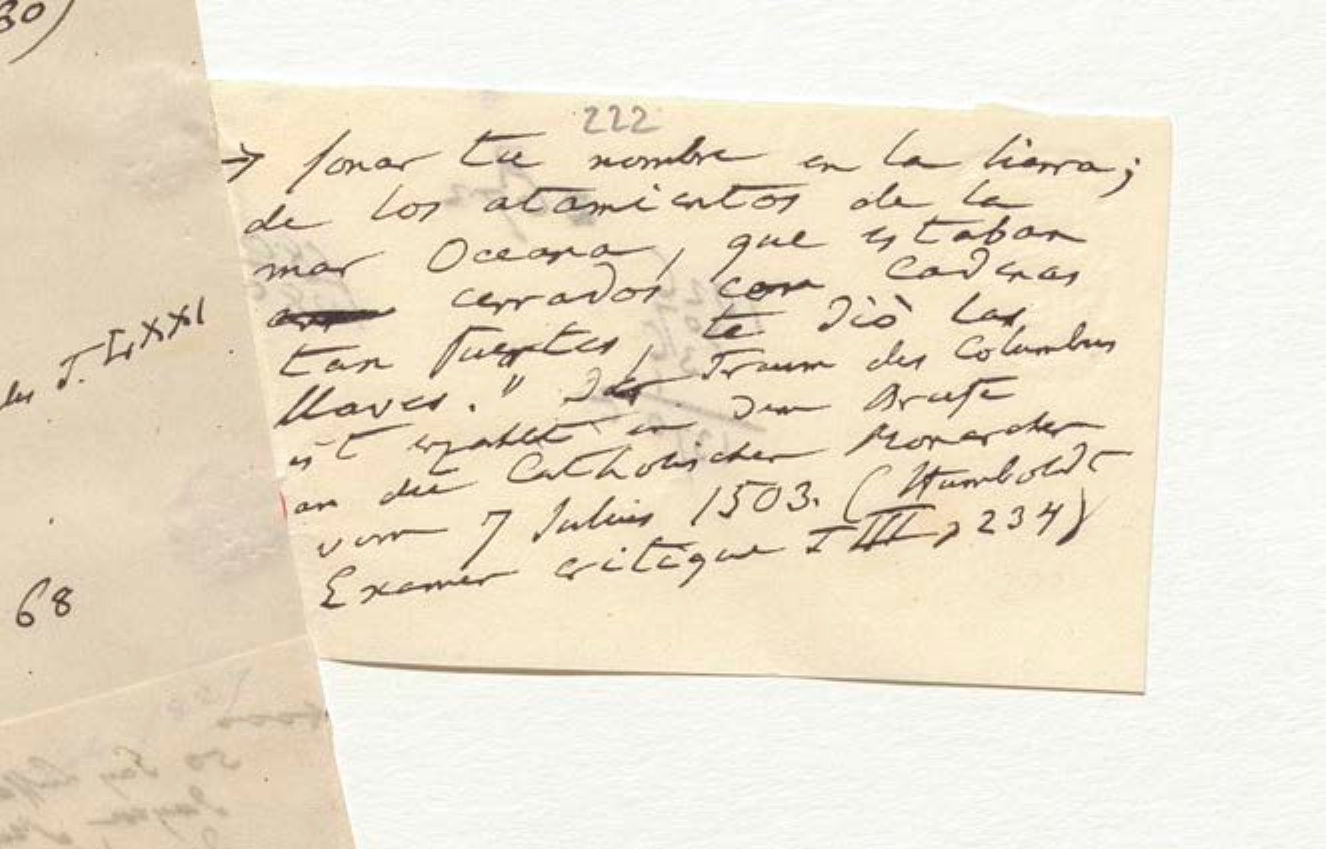 30)
des T. LXXI
68
222
→ sonar tu nombre en la tierra;
de los atamientos de la
mar Oceana, que estaban
cerrados con cadenas
tan fuertes, te diò las
llaves." Der Traum des Columbus
ist erzählt in dem Briefe
an die Catholischen Monarchen
vom 7 Julius 1503. (Humboldt
Examen critique T III, 234)